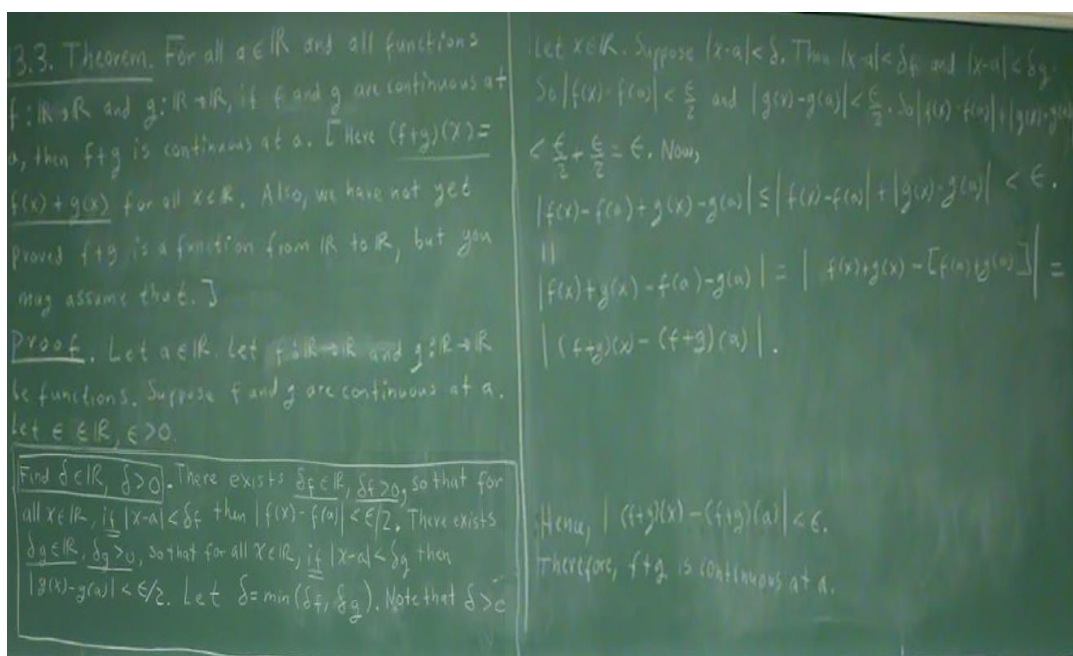 13.3. Theorem. For all a∈ℝ and all functions
f:ℝ→ℝ and g:ℝ→ℝ, if f and g are continuous at
a, then f+g is continuous at a. [Here (f+g)(x)=
f(x)+g(x) for all x∈ℝ. Also, we have not yet
proved f+g is a function from ℝ to ℝ, but you
may assume that.]
Proof. Let a∈ℝ. Let f:ℝ→ℝ and g:ℝ→ℝ
be functions. Suppose f and g are continuous at a.
Let ϵ∈ℝ, ϵ>0.
Find δ∈ℝ, δ>0. There exists δf∈ℝ, δf>0, so that for
all x∈ℝ, if |x-a|<δf then |f(x)-f(a)|<ϵ/2. There exists
δg∈ℝ, δg>0, so that for all x∈ℝ, if |x-a|<δg then
|g(x)-g(a)|<ϵ/2. Let δ=min(δf,δg). Note that δ>0
Let x∈ℝ. Suppose |x-a|<δ. Then |x-a|<δf and |x-a|<δg.
So |f(x)-f(a)|<ϵ/2 and |g(x)-g(a)|<ϵ/2. So |f(x)-f(a)|+|g(x)-g(a)|
<ϵ/2+ϵ/2=ϵ. Now,
|f(x)-f(a)+g(x)-g(a)|≤|f(x)-f(a)|+|g(x)-g(a)|<ϵ.
||
|f(x)+g(x)-f(a)-g(a)|=|f(x)+g(x)-[f(a)+g(a)]|=
|(f+g)(x)-(f+g)(a)|.
Hence, |(f+g)(x)-(f+g)(a)|<ϵ.
Therefore, f+g is continuous at a.